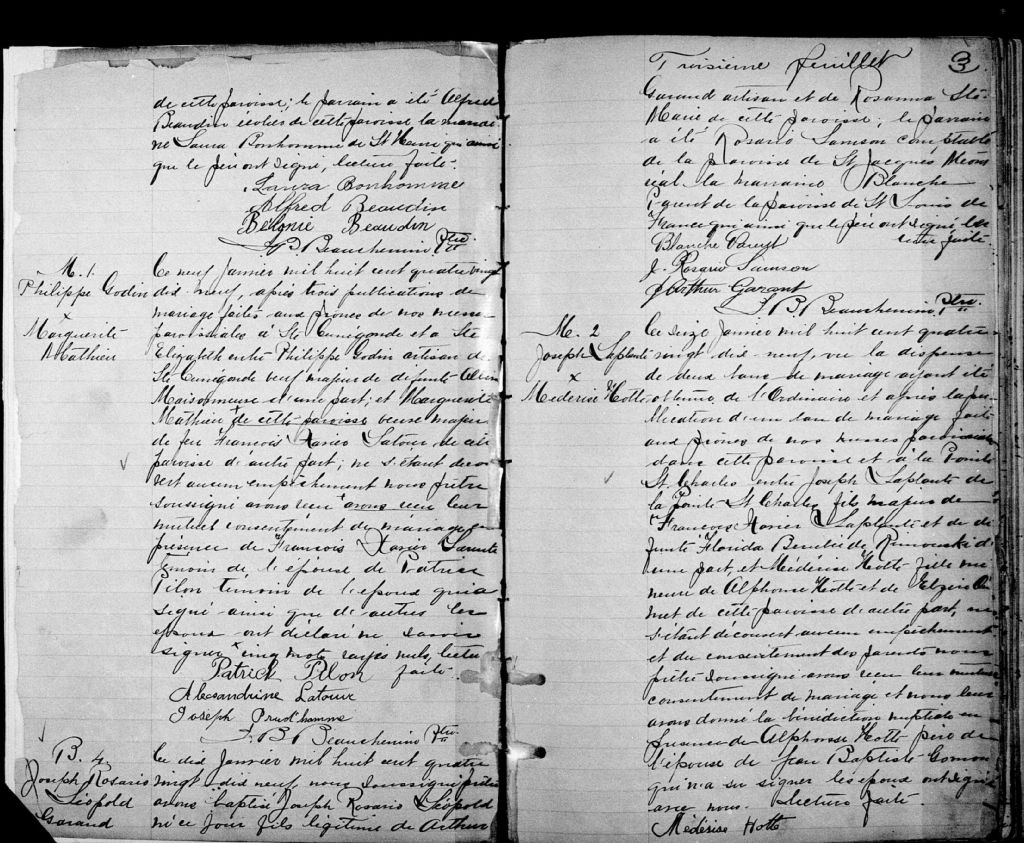 de cette paroisse; le parrain a été Alfred
Beaudin écolier de cette paroisse la marrai
ne Laura Bonhomme de St Henri qui ainsi
que le père ont signé, lecture faite.
Laura Bonhomme
Alfred Beaudin
Bélonie Beaudin
J. B. Beauchemin Ptre.
M. 1.
Philippe Godin
x
Marguerite
Mathieu
Ce neuf Janvier mil huit cent quatre vingt
dix neuf, après trois publications de
mariage faites aux prônes de nos messes
paroissiales à Ste Cunégonde et a Ste
Elizabeth entre Philippe Godin artisan de
Ste Cunégonde veuf majeur de défunte
Maisonneuve d'une part; et Marguerite
Mathieu de cette paroisse veuve majeur
de feu François Xavier Latour de cette
paroisse d'autre part; ne s'étant decou
vert aucun empêchement nous prêtre
soussigné avons reçu avons reçu leur
mutuel consentement de mariage en
présence de François Xavier
témoin de l'épouse de Patrick
Pilon témoin de l'époux qui a
signé ainsi que d'autres les
époux ont déclaré ne savoir
signer cinq mots rayés nuls, lecture
faite.
Patrick Pilon
Alexandrine Latour
Joseph Prud'homme
J. B. Beauchemin Ptre.
B. 4.
Joseph Rosario
Léopold
Garand
Ce dix Janvier mil huit cent quatre
vingt dix neuf, nous soussigné prêtre
avons baptisé Joseph Rosario Léopold
né ce jour fils légitime de Arthur
Troisième feuillet
3
Garand artisan et de Rosanna Ste
Marie de cette paroisse; le parrain
a été Rosario Samson comptable
de la paroisse de St Jacques Mont
réal la marraine Blanche
Paquet de la paroisse de St Louis de
France qui ainsi que le père ont signé lec
ture faite
Blanche Paquet
J. Rosario Samson
J Arthur Garant
J. B. Beauchemin, Ptre.
M. 2
Joseph Laplante
x
Médérise Hotte
Ce seize Janvier mil huit cent quatre
vingt dix neuf, vu la dispense
de deux bans de mariage ayant été
obtenu de l'Ordinaire et après la pu
blication d'un ban de mariage faite
aux prônes de nos messes paroissiales
dans cette paroisse et à la Pointe
St Charles entre Joseph Laplante de
la pointe St Charles fils majeur de
François Xavier Laplante et de dé
funte Florida de Rimouski d'
une part, et Médérise Hotte fille mi
neure de Alphonse Hotte et de
de cette paroisse d'autre part, ne
s'étant découvert aucun empêchement
et du consentement des parents nous
prêtre soussigné avons reçu leur mutuel
consentement de mariage et nous leur
avons donné la bénédiction nuptiale en
présence de Alphonse Hotte père de
l'épouse de Jean Baptiste
qui n'a su signer les époux ont signé
avec nous. Lecture faite.
Médérise Hotte